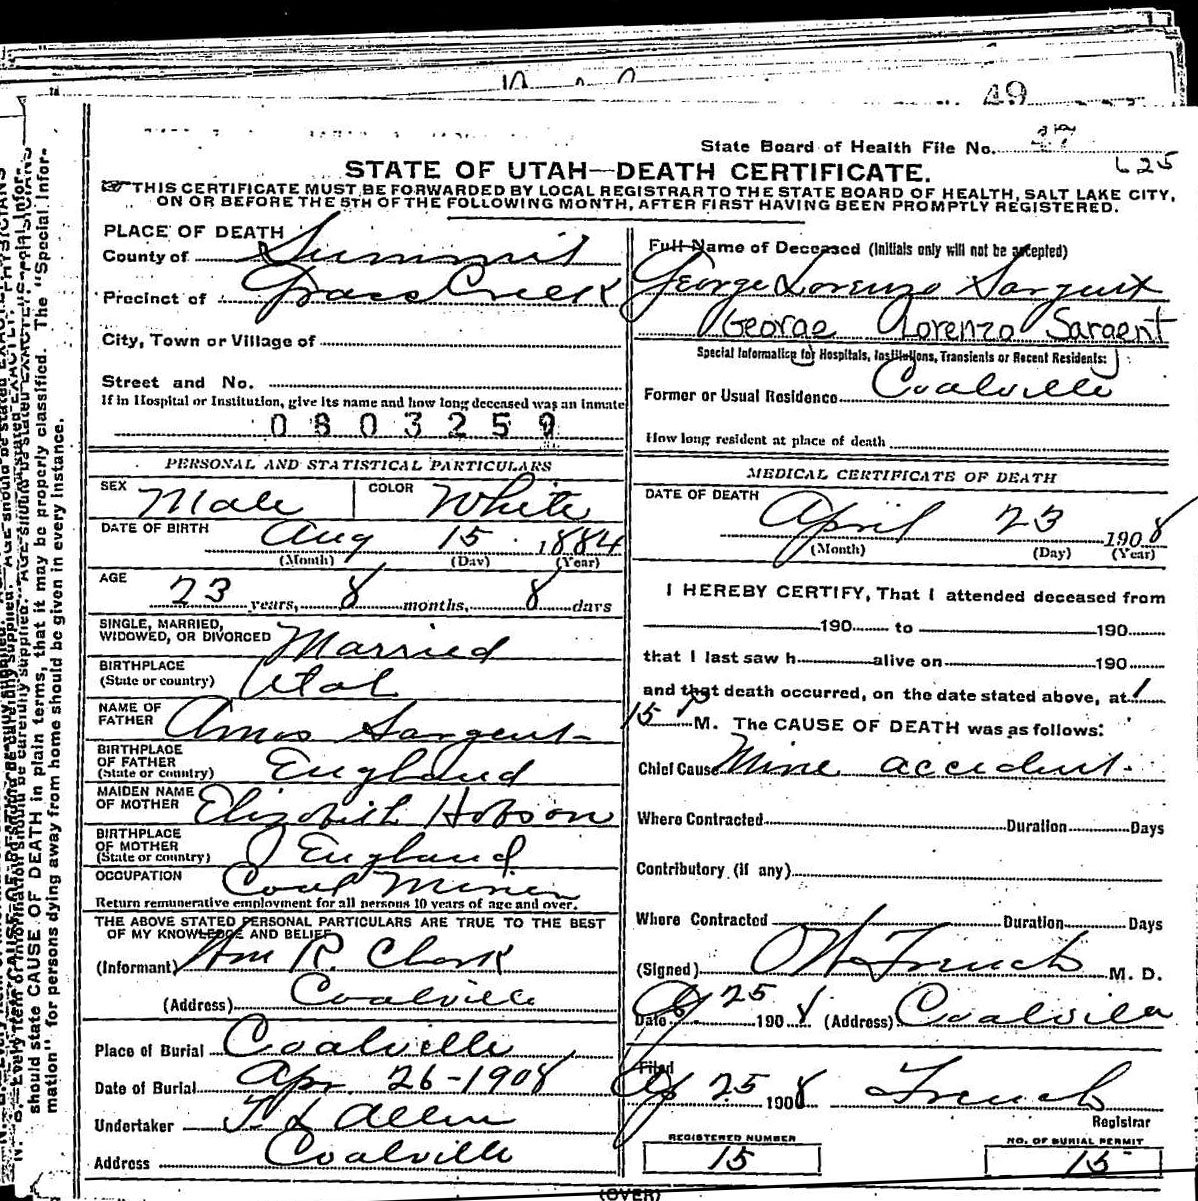 49
State Board of Health File No. 47
625
STATE OF UTAH—DEATH CERTIFICATE.
THIS CERTIFICATE MUST BE FORWARDED BY LOCAL REGISTRAR TO THE STATE BOARD OF HEALTH, SALT LAKE CITY,
ON OR BEFORE THE 5TH OF THE FOLLOWING MONTH, AFTER FIRST HAVING BEEN PROMPTLY REGISTERED.
PLACE OF DEATH
County of Summit
Precinct of Grass Creek
City, Town or Village of
Street and No.
If in Hospital or Institution, give its name and how long deceased was an inmate
0803259
PERSONAL AND STATISTICAL PARTICULARS
SEX Male COLOR White
DATE OF BIRTH Aug 15 1884
(Month) (Day) (Year)
AGE
23 years, 8 months, 8 days
SINGLE, MARRIED,
WIDOWED, OR DIVORCED Married
BIRTHPLACE
(State or country) Utah
NAME OF
FATHER Amos Sargent
BIRTHPLACE
OF FATHER
(State or country) England
MAIDEN NAME
OF MOTHER Elizabeth Hobson
BIRTHPLACE
OF MOTHER
(State or country) England
OCCUPATION Coal Miner
Return remunerative employment for all persons 10 years of age and over.
THE ABOVE STATED PERSONAL PARTICULARS ARE TRUE TO THE BEST
OF MY KNOWLEDGE AND BELIEF
(Informant) Wm R. Clark
(Address) Coalville
Place of Burial Coalville
Date of Burial Apr 26-1908
Undertaker T L Allen
Address Coalville
Full Name of Deceased (Initials only will not be accepted)
George Lorenzo Sargent
George Lorenzo Sargent
Special Information for Hospitals, Institutions, Transients or Recent Residents:
Former or Usual Residence Coalville
How long resident at place of death
MEDICAL CERTIFICATE OF DEATH
DATE OF DEATH
April 23 1908
(Month) (Day) (Year)
I HEREBY CERTIFY, That I attended deceased from
190 to 190
that I last saw h alive on 190
and that death occurred, on the date stated above, at 1
15 P M. The CAUSE OF DEATH was as follows:
Chief Cause Mine accident.
Where Contracted Duration Days
Contributory (if any)
Where Contracted Duration Days
(Signed) O W French M. D.
Date 25 1908 (Address) Coalville
Filed
25 1908 French
Registrar
REGISTERED NUMBER
15
NO. OF BURIAL PERMIT
15
(OVER)
should state CAUSE OF DEATH in plain terms, that it may be properly classified. The "Special Infor-
mation" for persons dying away from home should be given in every instance.